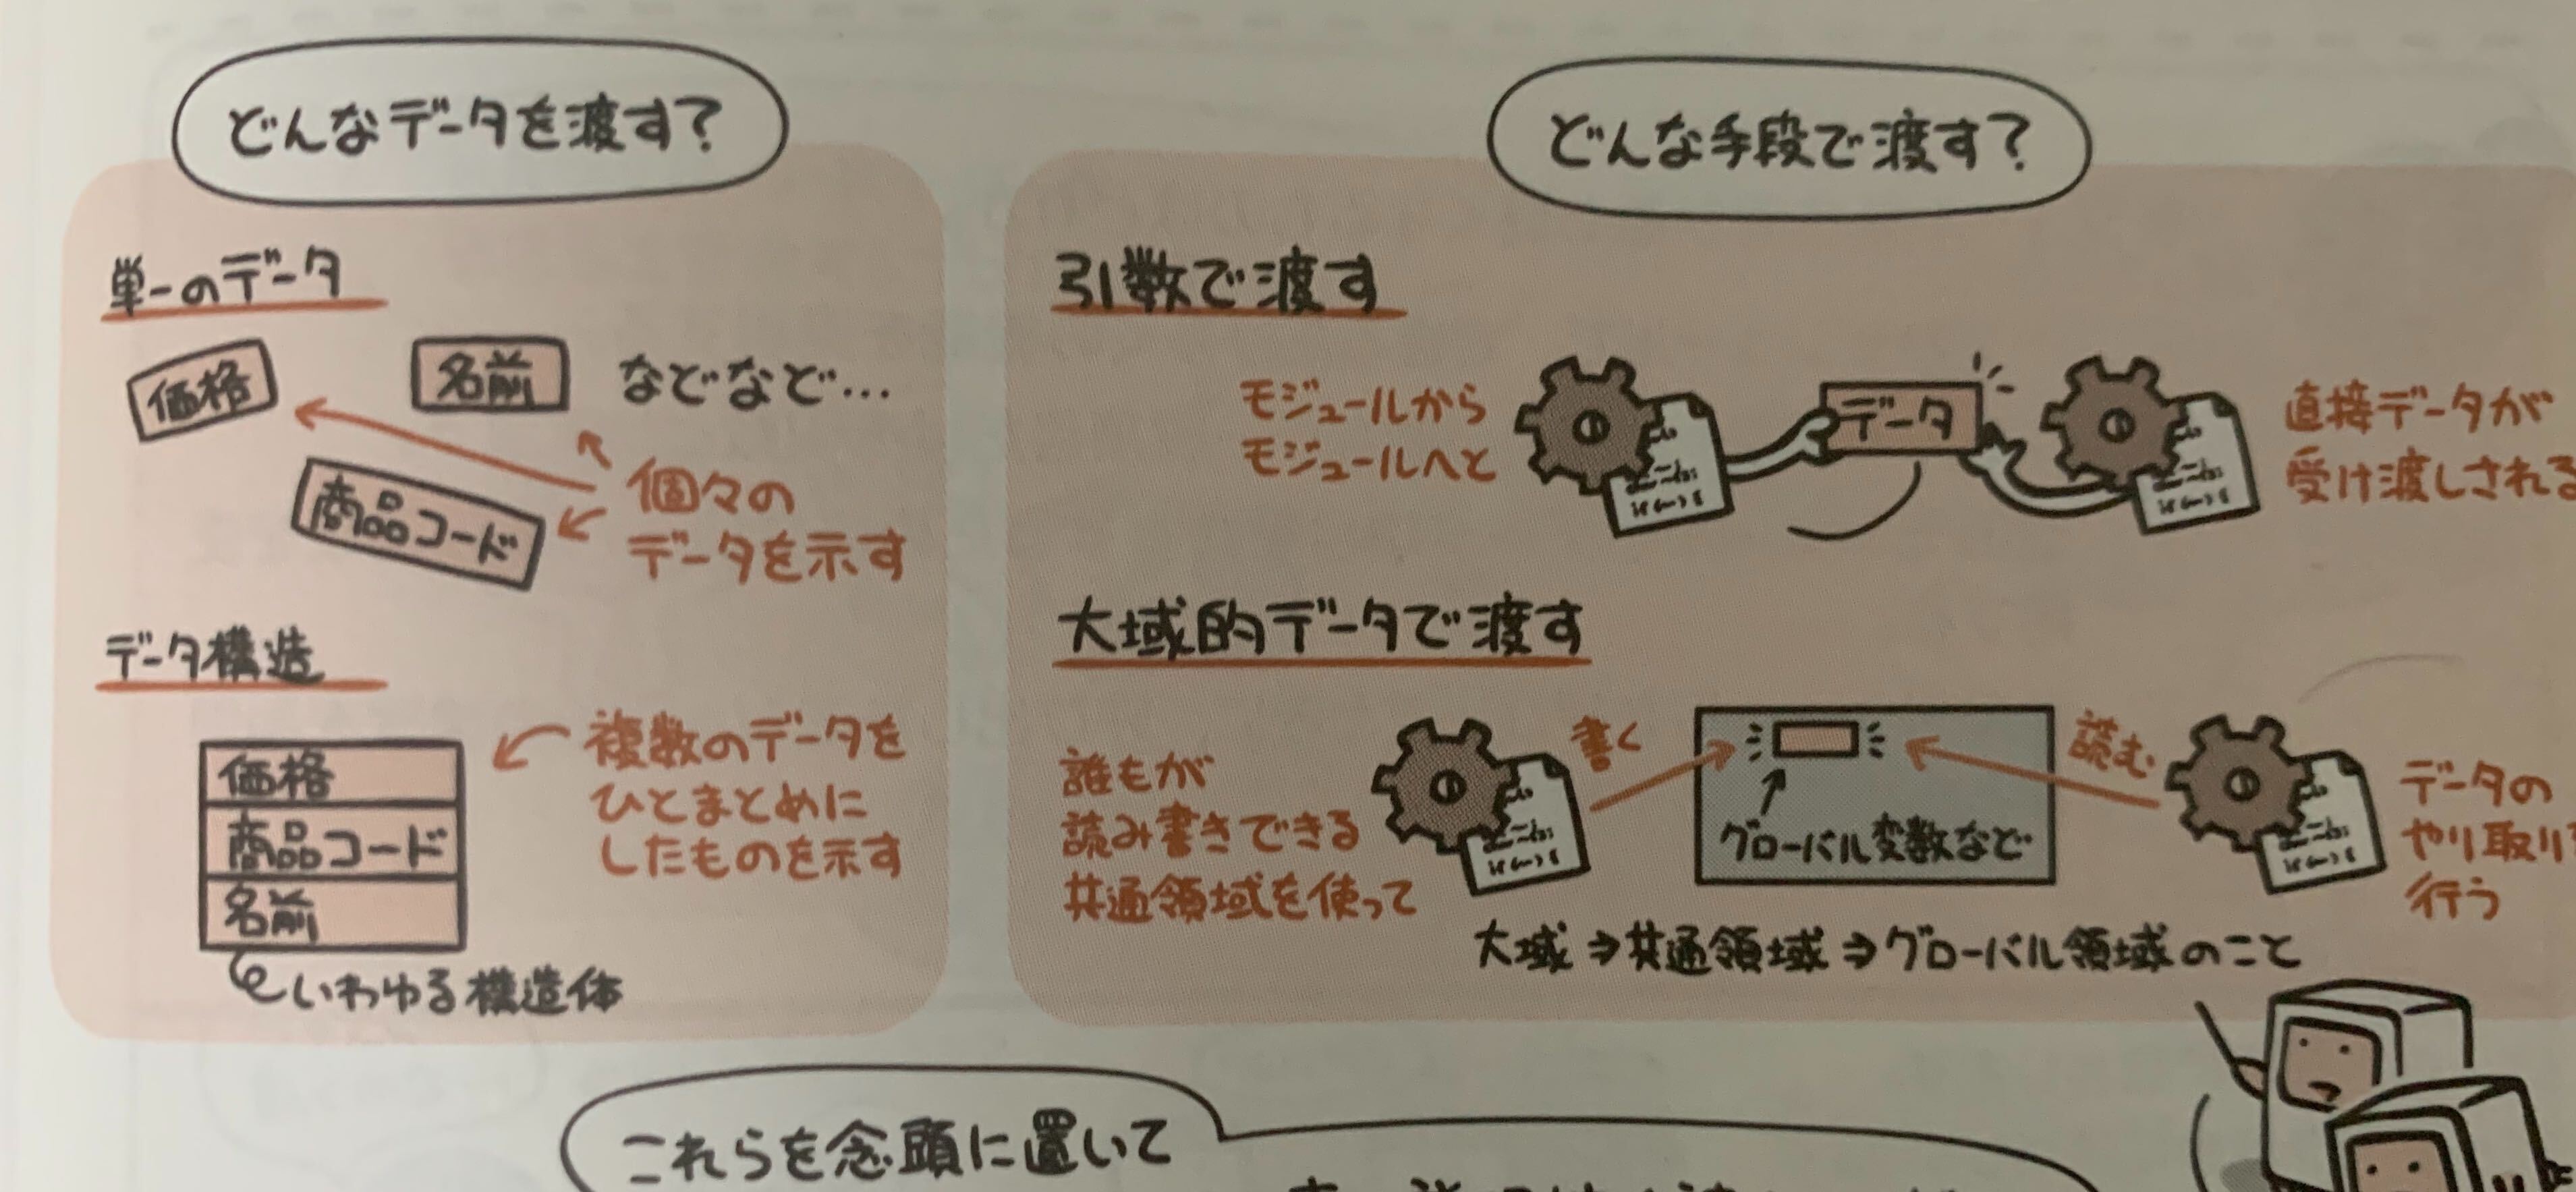 どんなデータを渡す?
単一のデータ
価格
名前
などなど…
商品コード
個々の
データを示す
データ構造
価格
商品コード
名前
複数のデータを
ひとまとめに
したものを示す
いわゆる構造体
どんな手段で渡す?
引数で渡す
モジュールから
モジュールへと
データ
直接データが
受け渡しされる
大域的データで渡す
誰もが
読み書きできる
共通領域を使って
書く
グローバル変数など
読む
データの
やり取り
行う
大域⇒共通領域⇒グローバル領域のこと
これらを念頭に置いて